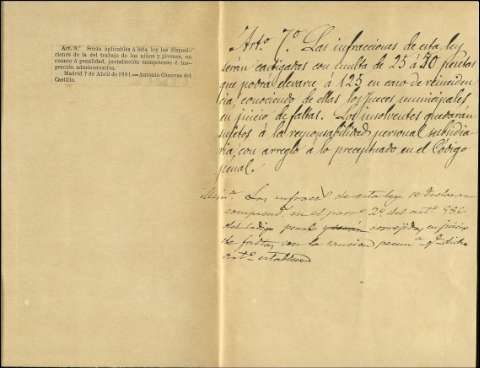 Art. 9.º Serán aplicables á esta ley las disposi-
ciones de la del trabajo de los niños y jóvenes, en
cuanto á penalidad, jurisdicción competente é ins-
pección administrativa.
Madrid 7 de Abril de 1891.—Antonio Cánovas del
Castillo.
Art.º 7.º Las infracciones de esta ley
serán castigadas con multa de 25 á 50 pesetas
que podrá elevarse á 125 en caso de reinciden-
cia, conociendo de ellas los jueces municipales,
en juicio de faltas. Los insolventes quedarán
sujetos á la responsabilidad personal subsidia-
ria, con arreglo á lo preceptuado en el Código
penal.
Las infracc.s de esta ley se
en el 2º del artº 986
del código penal corregidas en juicio
de faltas con la dicho
artº establece